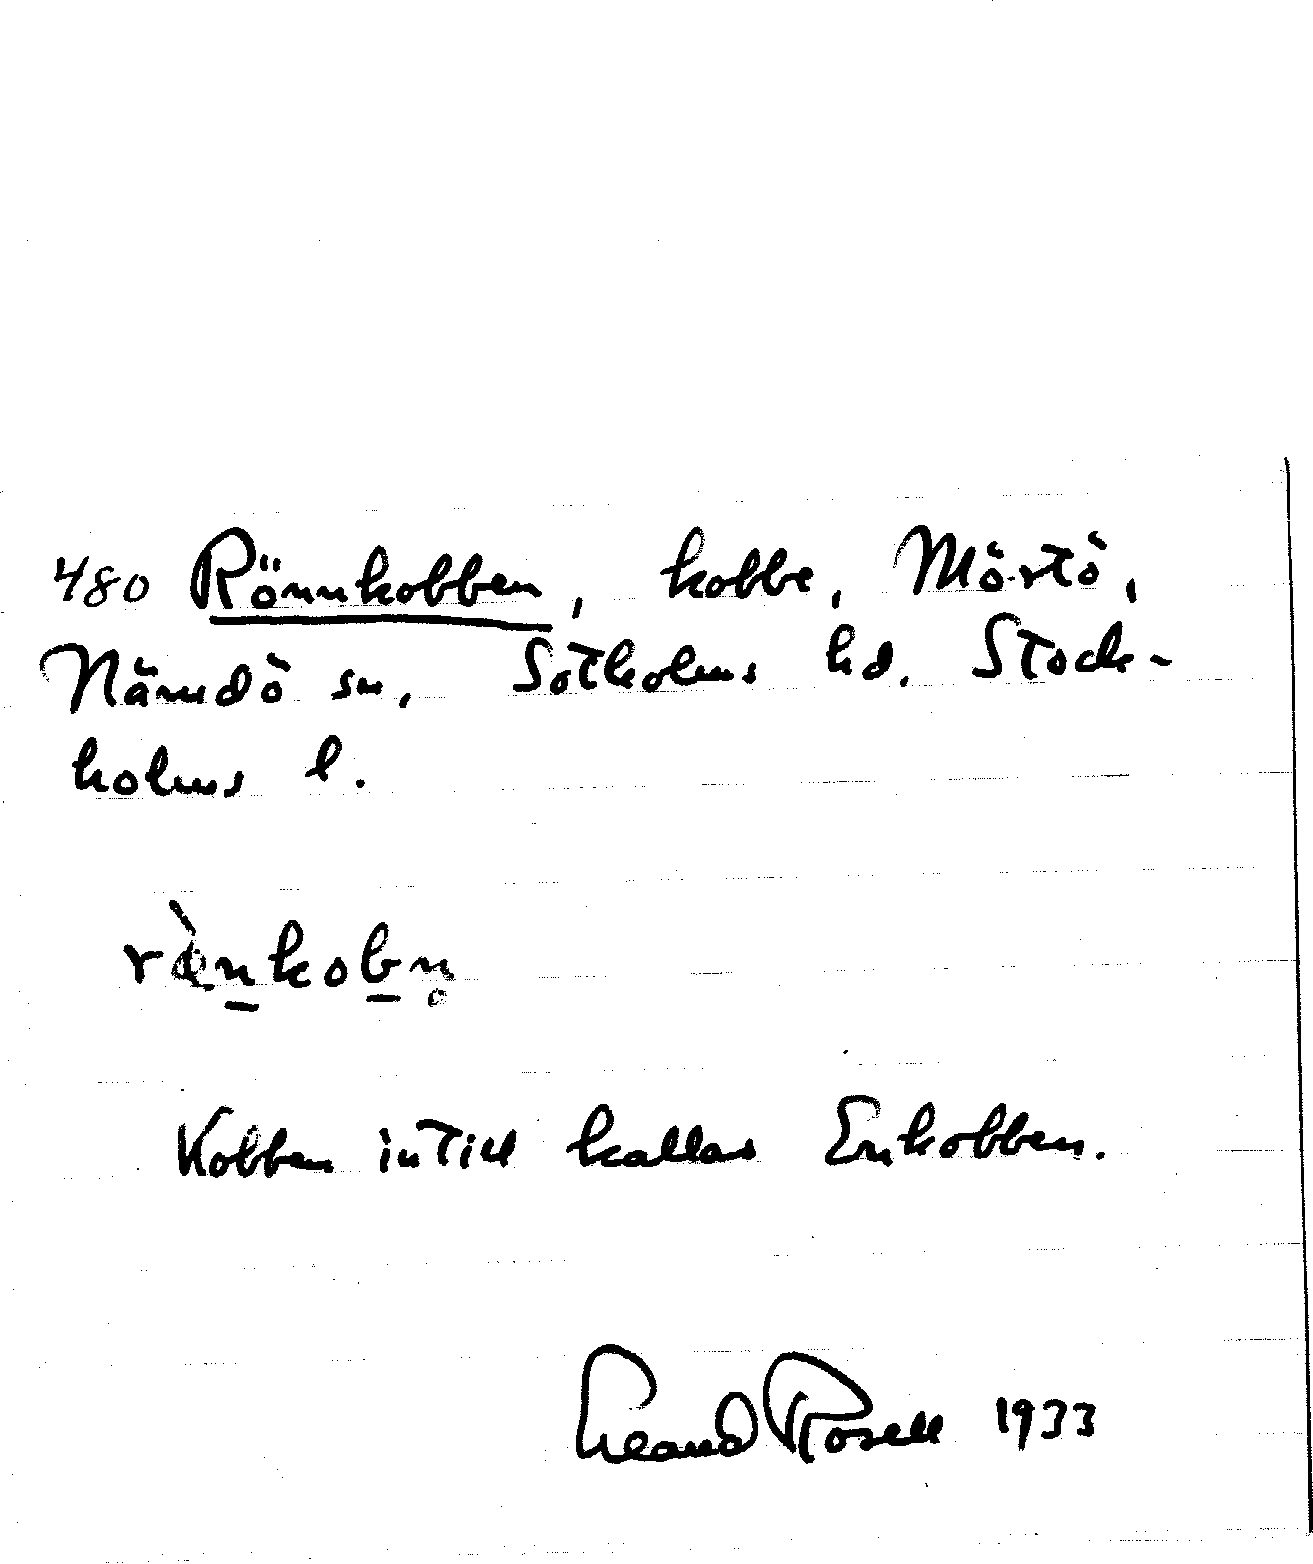 480 Rönnkobben, kobbe, Mörtö,
Nämdö sn, Sotholms hd. Stock-
holms l.
Kobben intill kallas Enkobben.
Rosell 1933